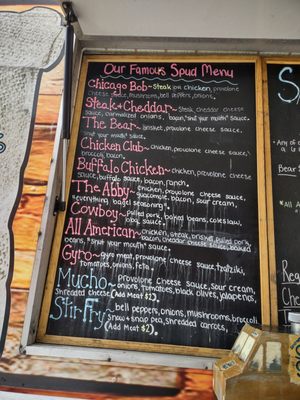 Our Famous Spud Menu
Chicago Bob~ Steak chicken, provolone
cheese sauce, mushrooms, bell peppers, onions.
Steak & Cheddar~ Steak, cheddar cheese
sauce, caramelized onions, bacon, "shut your mouth" sauce.
The Bear~ brisket, provolone cheese sauce,
"shut your mouth" sauce.
Chicken Club~ chicken, provolone cheese sauce,
broccoli, bacon.
Buffalo Chicken~ chicken, provolone cheese
sauce, buffalo sauce, bacon, ranch.
The Abby~ chicken, provolone cheese sauce,
guacamole, bacon, sour cream,
"everything bagel seasoning".
Cowboy~ pulled pork, baked beans, coleslaw,
bbq sauce.
All American~ chicken, steak, brisket, pulled pork,
bacon, cheddar cheese sauce, baked
beans, "shut your mouth" sauce.
Gyro~ gyro meat, provolone cheese sauce, tzatziki,
tomatoes, onions, feta.
Mucho~ provolone cheese sauce, sour cream,
onions, tomatoes, black olives, jalapeños,
shredded cheese (Add Meat $2).
Stir Fry~ bell peppers, onions, mushrooms, broccoli
snow & snap pea, shredded carrots,
(Add Meat $2).
Any of
Bear S
All
Re